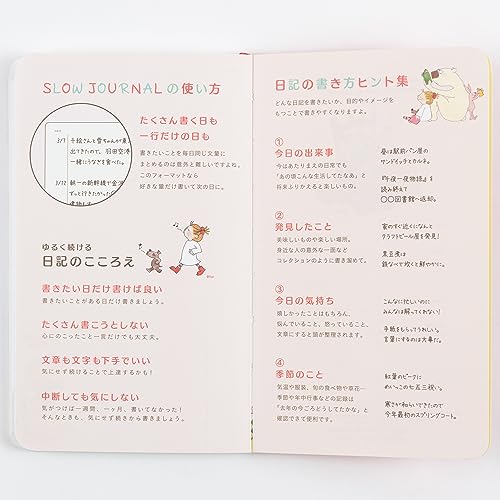 SLOW JOURNALの使い方
3/7 千絵さんと雪ちゃんが東
出てきたので、羽田空港
一緒にうなぎを食べた。
3/12 朝一の新幹線で金沢
たくさん書く日も
一行だけの日も
書きたいことを毎日同じ文量に
まとめるのは意外と難しいですよね。
このフォーマットなら
好きな量だけ書いて次の日に。
ゆるく続ける
日記のこころえ
書きたい日だけ書けば良い
書きたいことがある日だけ書きましょう。
たくさん書こうとしない
心にのこったこと一言だけでも大丈夫。
文章も文字も下手でいい
気にせず続けることで上達するかも!
中断しても気にしない
気がつけば一週間、一ヶ月、書いてなかった!
そんなときも、気にせず続きから書きましょう。
日記の書き方ヒント集
どんな日記を書きたいか、目的やイメージを
もつことで書きやすくなりますよ。
①
今日の出来事
今はあたりまえの日常でも
「あの頃こんな生活してたなあ」と
将来ふりかえると楽しいもの。
昼は駅前パン屋の
サンドイッチとカルネ。
『千夜一夜物語』を
読み終えて
〇〇図書館へ返却。
②
発見したこと
美味しいものや楽しい場所。
身近な人の意外な一面など
コレクションのように書き留めて。
家のすぐ近くになんと
クラフトビール屋を発見!
黒豆煮は
鉄なべで炊くと鮮やかに。
③
今日の気持ち
嬉しかったことはもちろん、
悩んでいること、怒っていること、
文章にすると頭が整理されます。
こんなに忙しいのに
みんなは解ってくれない!
手紙をもらってうれしい。
言葉にするのは大事だ。
④
季節のこと
気温や服装、旬の食べ物や草花…
季節や年中行事などの記録は
「去年の今ごろどうしてたかな」と
確認できて便利です。
紅葉のピークに
めいっこの七五三祝い。
寒さが和らいできたので
今年最初のスプリングコート。